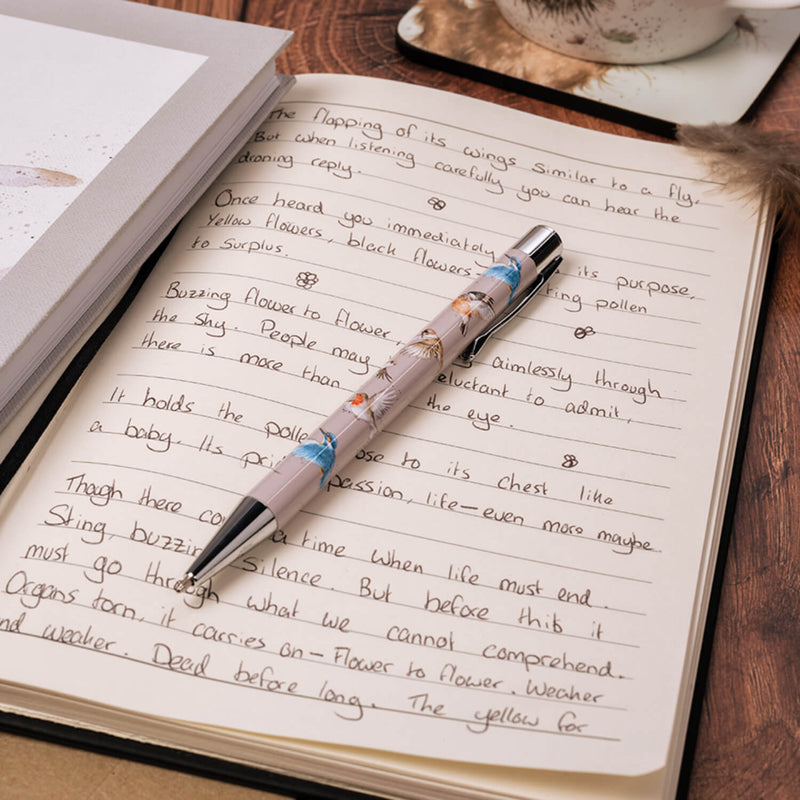 The flapping of its wings similar to a fly.
But when listening carefully you can hear the
droning reply.
Once heard you immediately its purpose,
Yellow flowers, black flowers- ting pollen
to surplus.
Buzzing flower to flower, aimlessly through
the sky. People may eluctant to admit,
there is more than the eye.
It holds the polle ose to its chest like
a baby. Its pri passion, life—even more maybe.
Though there co a time when life must end.
Sting, buzzin Silence. But before this it
must go through what we cannot comprehend.
Organs torn, it carries on—Flower to flower. Weaker
nd weaker. Dead before long. The yellow for